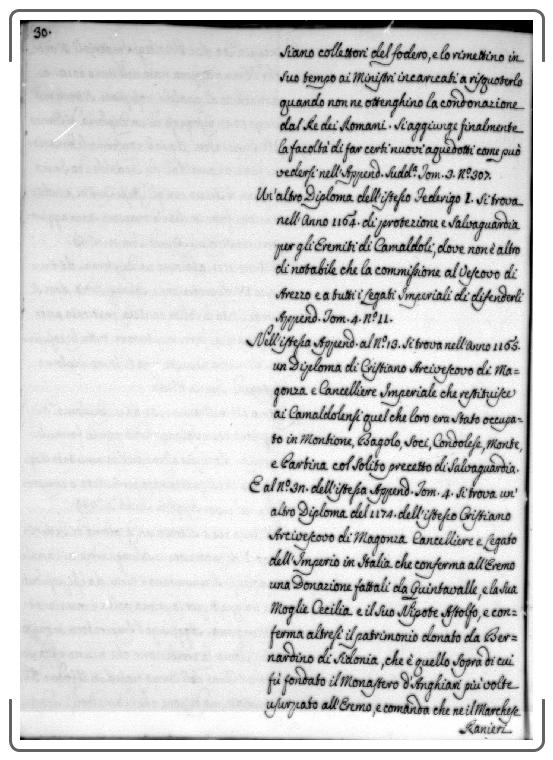 30.
Siano collettori del fodero, e lo rimettino in
suo tempo ai Ministri incaricati a risquoterlo
quando non ne ottenghino la condonazione
dal Re dei Romani. Si aggiunge finalmente
la facoltà di far certi nuovi aquedotti come può
vedersi nell'Append. Sudd.ª Tom. 3. Nº 307.
Un'altro Diploma dell'istesso Federigo I. Si trova
nell'Anno 1164. di protezione e Salvaguardia
per gli Eremiti di Camaldoli, dove non è altro
di notabile che la commissione al Vescovo di
Arezzo e a tutti i Legati Imperiali di difenderli
Append. Tom. 4. Nº 11.
Nell'istessa Append. al Nº 13. Si trova nell'Anno 1165.
un Diploma di Cristiano Arcivescovo di Ma-
gonza e Cancelliere Imperiale che restituisce
ai Camaldolensi quel che loro era Stato occupa-
to in Montione, Bagolo, Soci, Condolese, Monte,
e Partina col Solito precetto di Salvaguardia.
E al Nº 37. dell'istessa Append. Tom. 4. Si trova un'
altro Diploma del 1174. dell'istesso Cristiano
Arcivescovo di Magonza Cancelliere e Legato
dell'Imperio in Italia che conferma all'Eremo
una Donazione fattali da Guintavalle, e la Sua
Moglie Cecilia e il Suo Nipote Astolfo, e con=
ferma altresì il patrimonio donato da Ber=
nardino di Sidonia, che è quello Sopra di cui
fù fondato il Monastero d'Anghiari più volte
usurpato all'Eremo, e comanda che ne il Marchese
Ranieri